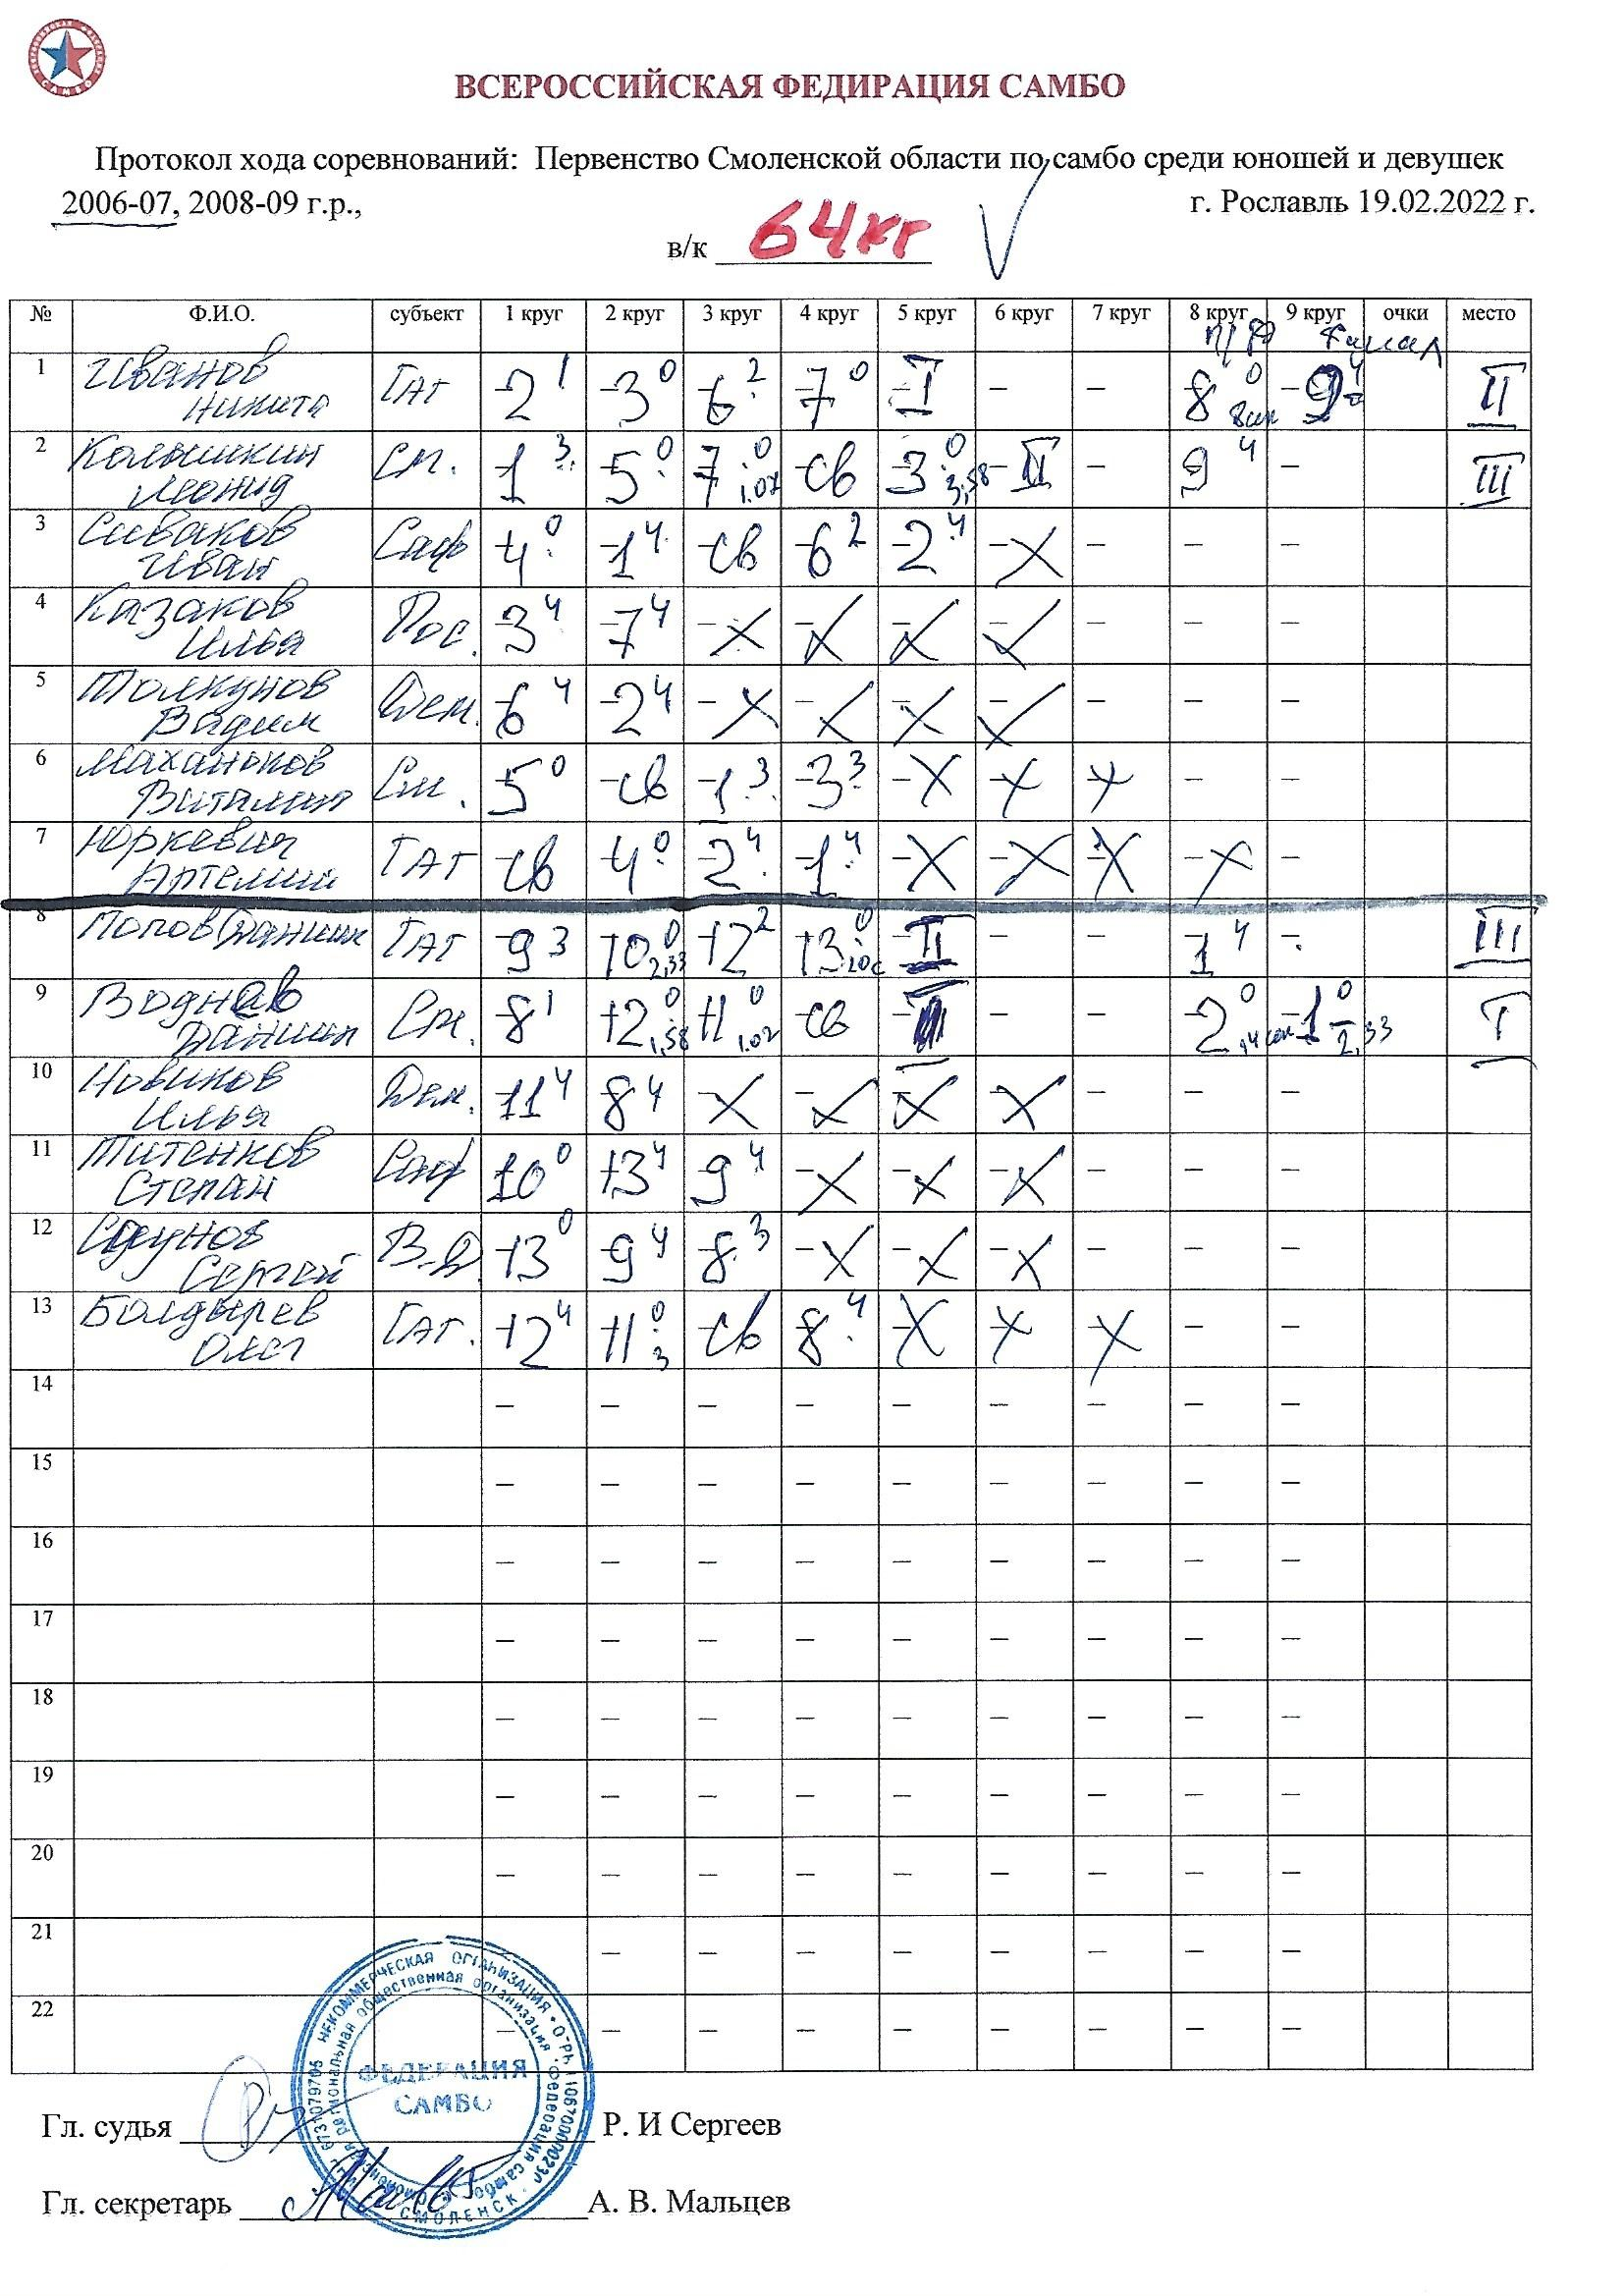 ВСЕРОССИЙСКАЯ ФЕДИРАЦИЯ САМБО
Протокол хода соревнований: Первенство Смоленской области по самбо среди юношей и девушек
2006-07, 2008-09 г.р., г. Рославль 19.02.2022 г.
в/к 64кг
№ Ф.И.О. субъект 1 круг 2 круг 3 круг 4 круг 5 круг 6 круг 7 круг 8 круг 9 круг очки место
п/ф Финал
1 Иванов Никита Гаг -2 1 -3 0 6 2 -7 0 -I - - 8 0 -9 4 II
2 Леонид См. -1 3 -5 0 7 0 1.07 -св -3 0 3,58 -II - 9 4 - III
3 Сиваков Иван Саф -4 0 -1 4 -св -6 2 -2 4 -X - - -
4 Казаков Илья Рос. -3 4 -7 4 -X -X -X -X - - -
5 Толкунов Вадим Дем. -6 4 -2 4 -X -X -X -X - - -
6 Маханьков Виталий См. -5 0 -св -1 3 -3 3 -X -X -X - -
7 Юркевич Артемий Гаг -св 4 0 -2 4 -1 4 -X -X -X -X -
8 Попов Даниил Гаг -9 3 10 0 2,33 12 2 13 0 20с -II - - 1 4 -
III
9 Даниил См. -8 1 12 0 1,58 11 0 1.07 -св - - 2 0 -1 0 2,33 I
10 Новиков Илья Дем. -11 4 8 4 -X -X -X -X - - -
11 Титенков Степан Саф 10 0 13 4 9 4 -X -X -X - - -
12 Сергей В-Д 13 0 -9 4 -8 3 -X -X -X - - -
13 Болдырев Олег Гаг. 12 4 11 0 3 -св 8 4 -X -X -X - -
14 - - - - - - - - -
15 - - - - - - - - -
16 - - - - - - - - -
17 - - - - - - - - -
18 - - - - - - - - -
19 - - - - - - - - -
20 - - - - - - - - -
21 - - - - - - - -
22 - - - - - - - - -
ФЕДЕРАЦИЯ
САМБО
СМОЛЕНСК
Гл. судья Р. И Сергеев
Гл. секретарь А. В. Мальцев